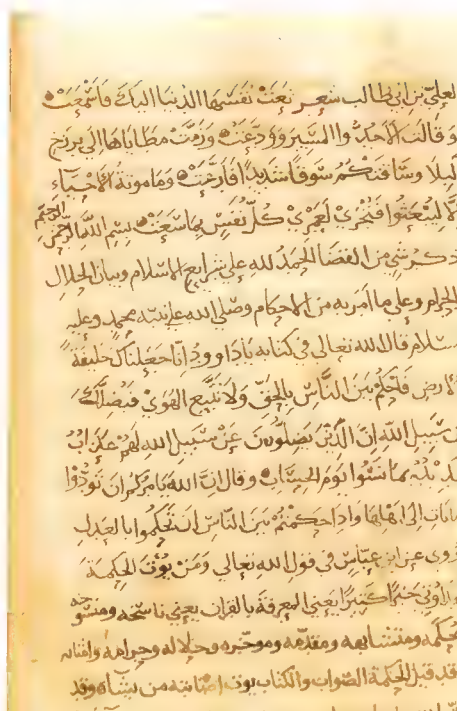 لعلي بن ابي طالب شعر نعت نفسها الدنيا اليك فاسمعت
وقالت الا جدوا المسير وودعت وزمت مطاياها الي برزخ
وساقتكم سوقا شديدا فازعت وما موتة الاحياء
الا ليبعثوا فتجزي لعمري كل نفس بما سعت بسم الله الرحمن الرحيم
ذكر شي من القضا الحمد لله علي شرايع الاسلام وبيان الحلال
الحرام وعلي ما امر به من الاحكام وصلي الله علي نبيه محمد وعليه
سلام قال الله تعالي في كتابه يا داوود انا جعلناك خليفة
الارض فاحكم بين الناس بالحق ولا تتبع الهوي فيضلك
ن سبيل الله ان الذين يضلون عن سبيل الله لهم عذاب
شديد بما نسوا يوم الحساب وقال ان الله يامركم ان تودوا
مانات الي اهلها واذا حكمتم بين الناس ان تحكموا بالعدل
روي عن ابن عباس في قول الله تعالي ومن يوت الحكمة
د اوتي خيرا كثيرا يعني المعرفة بالقران يعني ناسخه ومنسوخه
محكمه ومتشابهه ومقدمه وموخره وحلاله وحرامه وامثاله
قد قيل الحكمة الصواب والكتاب يوت اصابته من يشاه وقد